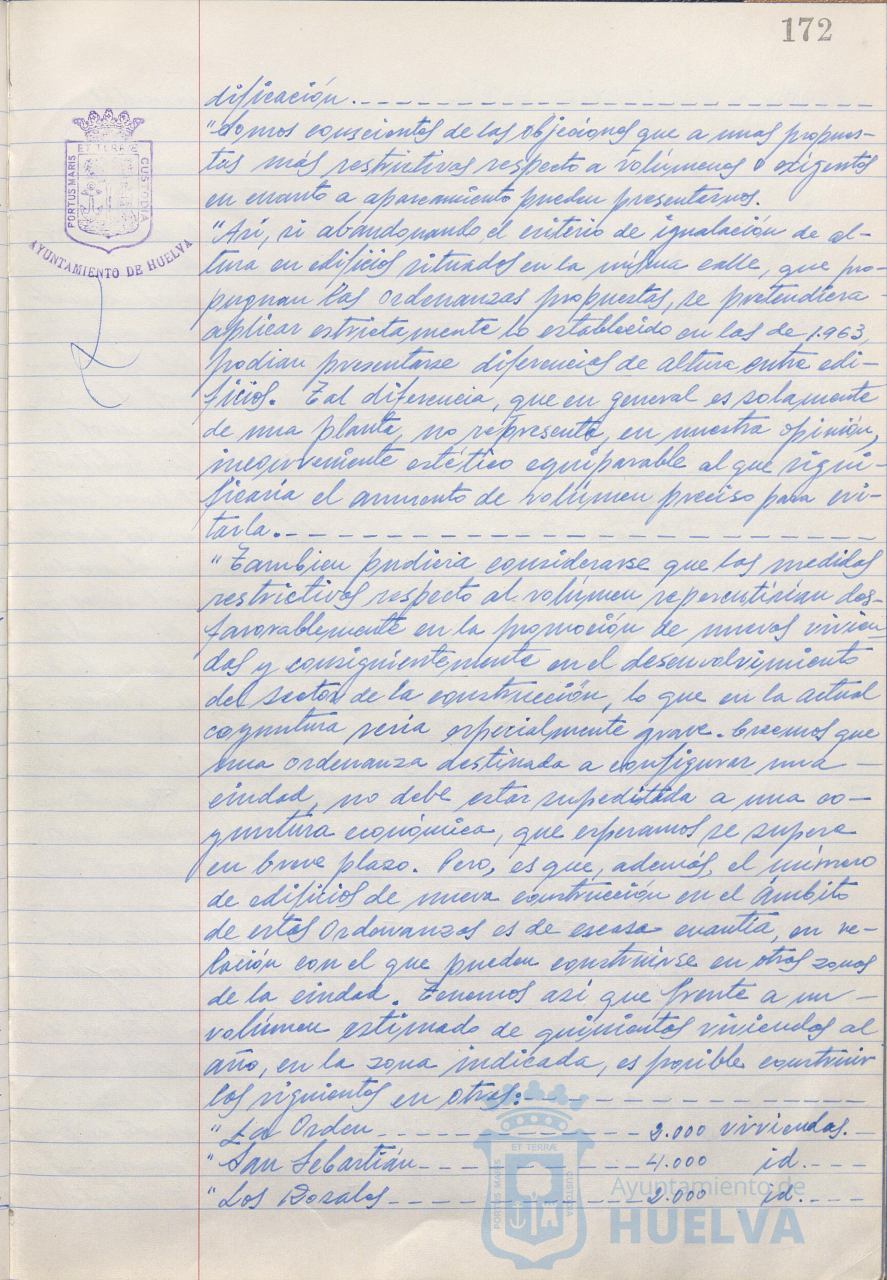 172
dificación.
"Somos conscientes de las objeciones que a unas propues-
tas más restrictivas respecto a volúmenes o exigentes
en cuanto a aparcamiento pueden presentarnos.
"Así, si abandonando el criterio de igualación de al-
tura en edificios situados en la misma calle, que pro-
pugnan las Ordenanzas propuestas, se pretendiera
aplicar estrictamente lo establecido en las de 1.963,
podian presentarse diferencias de altura entre edi-
ficios. Tal diferencia, que en general es solamente
de una planta, no representa, en nuestra opinión,
inconveniente estético equiparable al que signi-
ficaría el aumento de volúmen preciso para evi-
tarla.
"Tambien pudiera considerarse que las medidas
restrictivas respecto al volúmen repercutirían des-
favorablemente en la promoción de nuevas vivien-
das y consiguientemente en el desenvolvimiento
del sector de la construcción, lo que en la actual
coyuntura sería especialmente grave. Creemos que
una ordenanza destinada a configurar una
ciudad, no debe estar supeditada a una co-
yuntura económica, que esperamos se supere
en breve plazo. Pero, es que, además, el número
de edificios de nueva construcción en el Ámbito
de estas Ordenanzas es de escasa cuantía, en re-
lación con el que pueden construirse en otras zonas
de la ciudad. Tenemos así que frente a un
volúmen estimado de quinientas viviendas al
año, en la zona indicada, es posible construir
las siguientes en otras:
"La Orden 2.000 viviendas.
"San Sebastián 4.000 id.
"Los Rosales 2.000 id.
PORTUS MARIS
ET TERRÆ
CUSTODIA
AYUNTAMIENTO DE HUELVA
PORTUS MARIS
ET TERRÆ
CUSTODIA
Ayuntamiento de
HUELVA